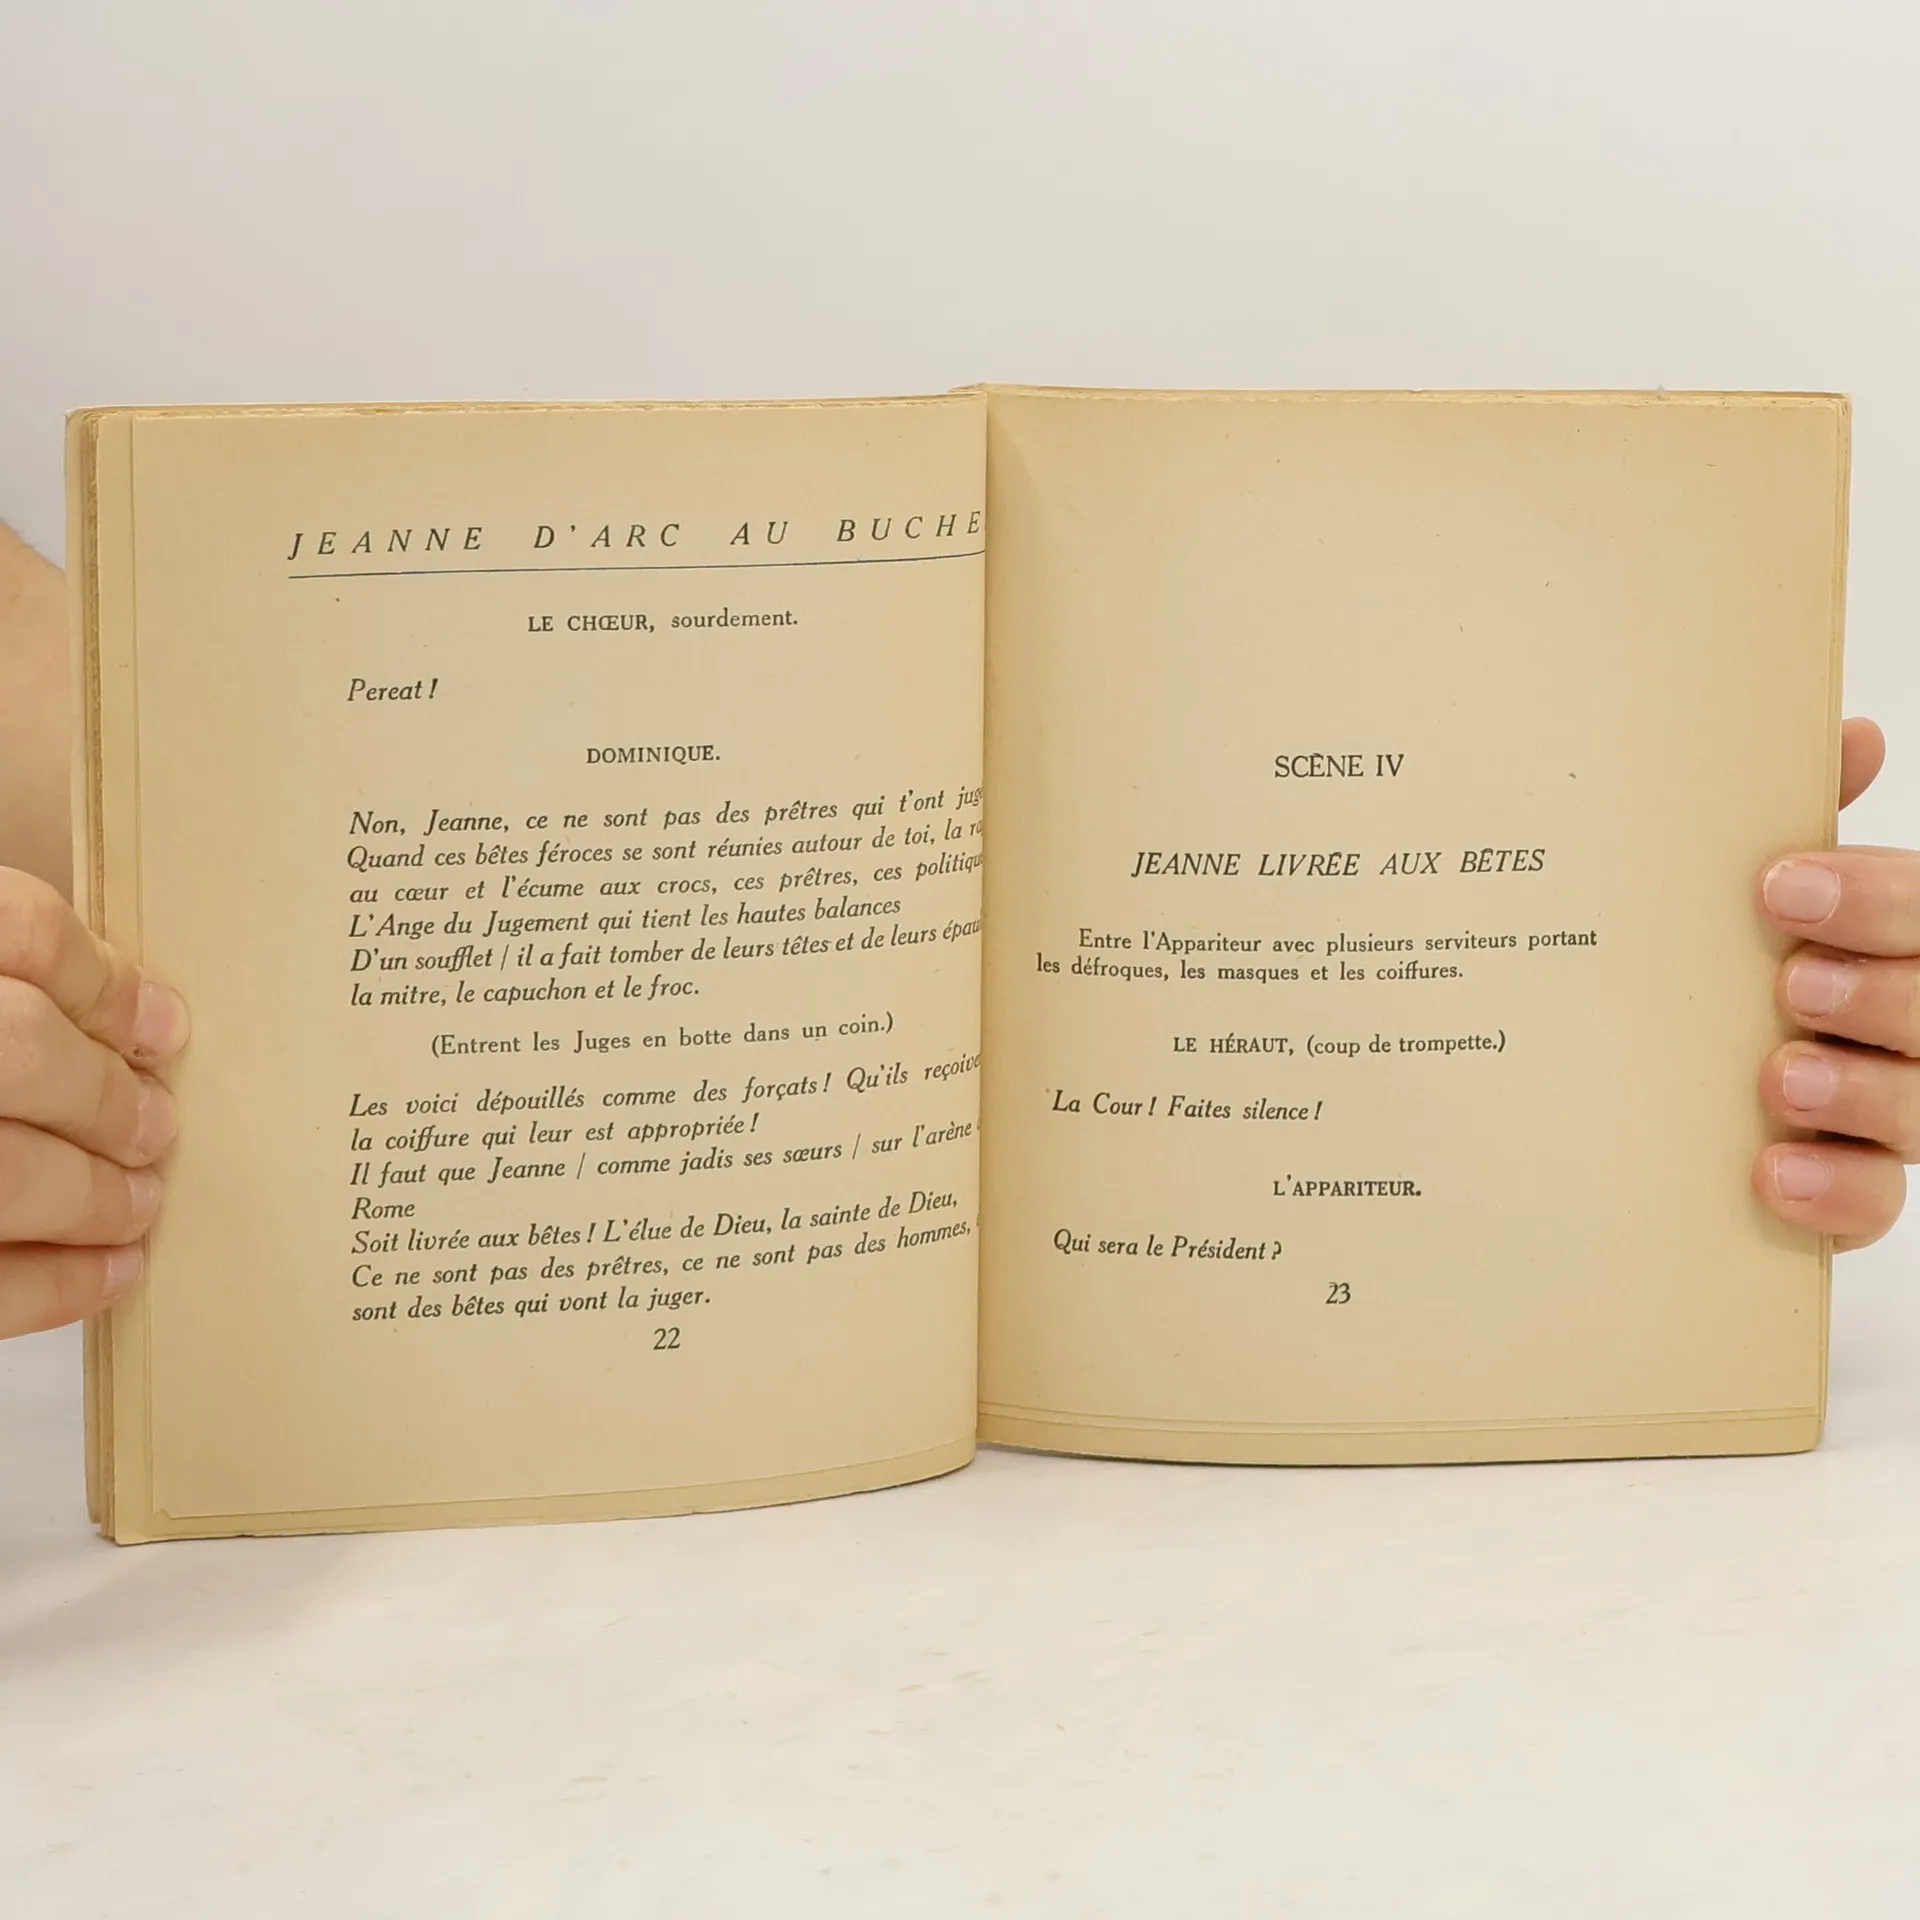 JEANNE D'ARC AU
LE CHŒUR, sourdement.
Pereat !
DOMINIQUE.
Non, Jeanne, ce ne sont pas des prêtres qui t'ont
Quand ces bêtes féroces se sont réunies autour de toi, la
au cœur et l'écume aux crocs, ces prêtres, ces
L'Ange du Jugement qui tient les hautes balances
D'un soufflet / il a fait tomber de leurs têtes et de leurs
la mitre, le capuchon et le froc.
(Entrent les Juges en botte dans un coin.)
Les voici dépouillés comme des forçats ! Qu'ils
la coiffure qui leur est appropriée !
Il faut que Jeanne / comme jadis ses sœurs / sur l'arène
Rome
Soit livrée aux bêtes ! L'élue de Dieu, la sainte de Dieu,
Ce ne sont pas des prêtres, ce ne sont pas des hommes,
sont des bêtes qui vont la juger.
22
SCÈNE IV
JEANNE LIVRÉE AUX BÊTES
Entre l'Appariteur avec plusieurs serviteurs portant
les défroques, les masques et les coiffures.
LE HÉRAUT, (coup de trompette.)
La Cour ! Faites silence !
L'APPARITEUR.
Qui sera le Président ?
23